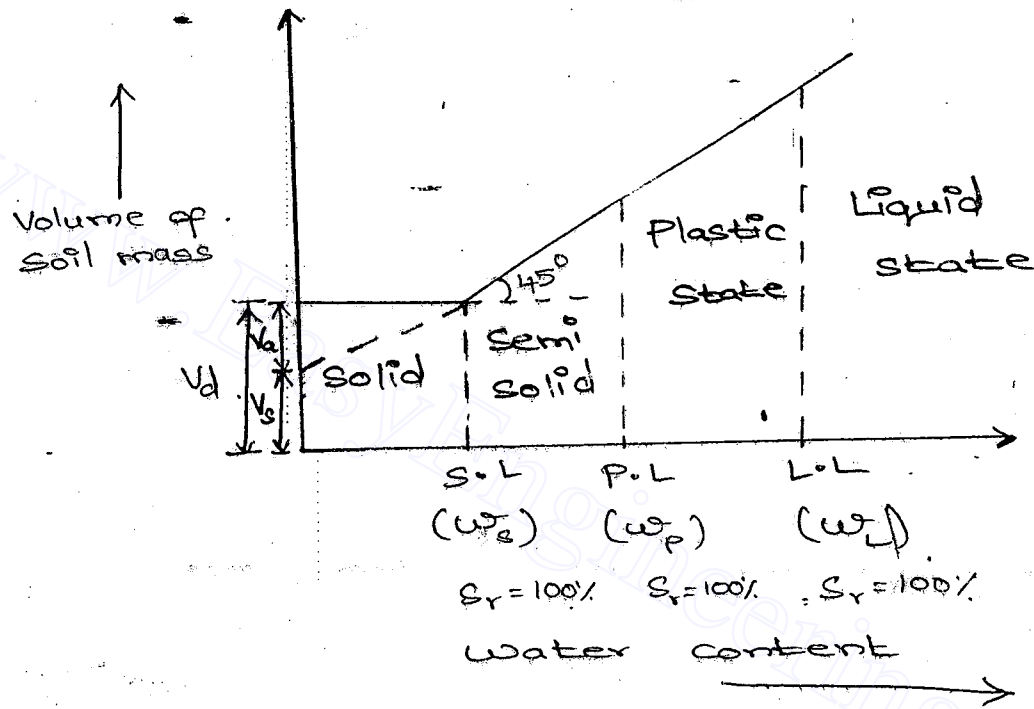 Volume of
Soil mass
Vd
Va
Vs
45°
Solid
Semi
solid
Plastic
state
Liquid
state
S.L
P.L
L.L
(ws)
(wp)
(wL)
Sr = 100%
Sr = 100%
Sr = 100%
water content
www.EasyEngineering